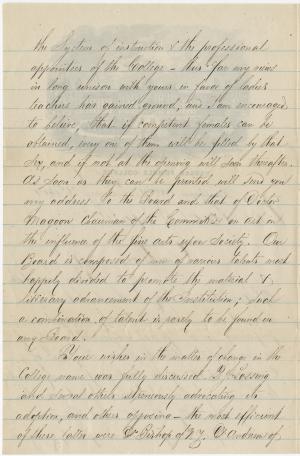 the System of instruction & the professional
appointees of the College - thus far my views
in long unison with yours in favor of ladies
teachers has gained ground, and I am encouraged
to believe, that if competent females can be
obtained, every one of them will be filled by that
Sex, and if not at the opening will soon thereafter.
As soon as they can be printed will send you
my address to the Board and that of Doctor
Magoon Chairman of the Committee on art on
the influence of the fine arts upon Society. Our
Board is composed of men of various talents most
happily divided to promote the material &
literary advancement of the Institution; Such
a combination of talent is rarely to be found in
any Board.
Your wishes in the matter of change in the
College name was fully discussed. Lossing
and several others strenuously advocating its
adoption, and others opposing - the most efficient
of these latter were Dr Bishop of N.Y. of